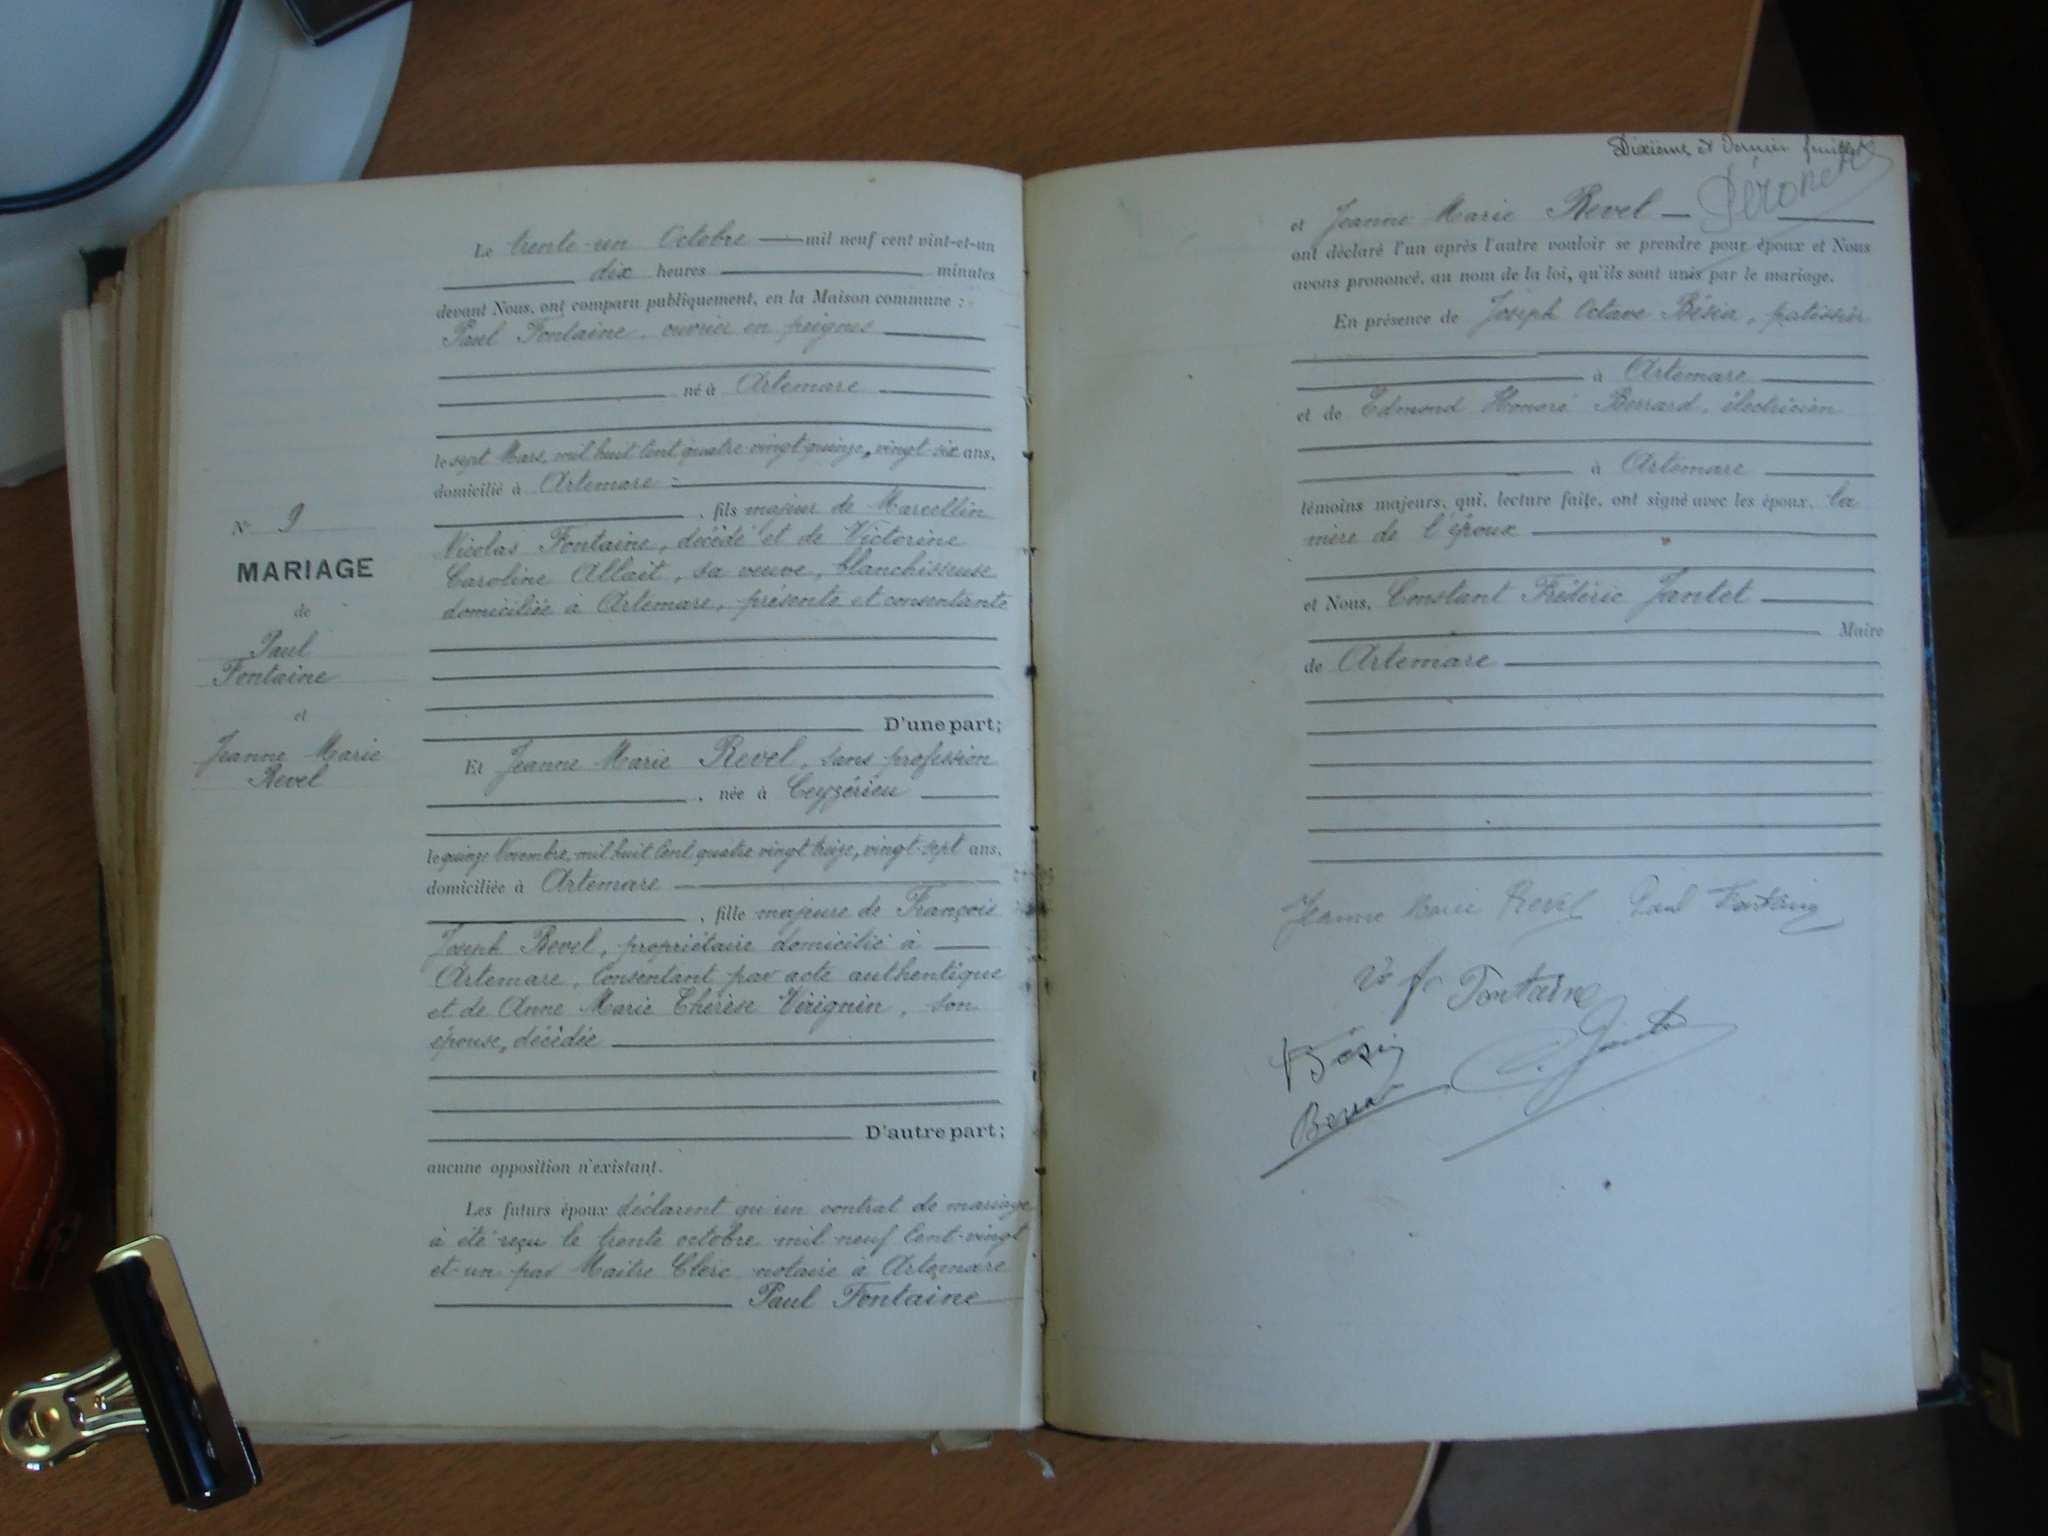 Le trente-un Octobre mil neuf cent vint-et-un
dix heures minutes
devant Nous, ont comparu publiquement, en la Maison commune :
Paul Fontaine, ouvrier en peignes
né à Artemare
le sept Mars, mil huit cent quatre-vingt quinze, vingt-six ans,
domicilié à Artemare
, fils majeur de Marcellin
Nicolas Fontaine, décédé et de Victorine
Caroline Allait, sa veuve, blanchisseuse
domiciliée à Artemare, présente et consentante
D'une part;
Et Jeanne Marie Revel, sans profession
, née à Ceyzérieu
le quinze Novembre, mil huit cent quatre vingt treize, vingt-sept ans,
domiciliée à Artemare
, fille majeure de François
Joseph Revel, propriétaire domicilié à
Artemare, consentant par acte authentique
et de Anne Marie Thérèse Virignin, son
épouse, décédée
D'autre part;
aucune opposition n'existant.
Les futurs époux déclarent qu'un contrat de mariage
à été reçu le trente octobre mil neuf cent-vingt
et-un par Maitre Clerc notaire à Artemare
Paul Fontaine
N° 9
MARIAGE
de
Paul
Fontaine
et
Jeanne Marie
Revel
Dixième et dernier feuillet
et Jeanne Marie Revel
ont déclaré l'un après l'autre vouloir se prendre pour époux et Nous
avons prononcé, au nom de la loi, qu'ils sont unis par le mariage.
En présence de Joseph Octave Bésin, patissier
à Artemare
et de Edmond Honoré Berrard, électricien
à Artemare
témoins majeurs, qui, lecture faite, ont signé avec les époux, la
mère de l'époux
et Nous, Constant Frédéric Jantet
Maire
de Artemare
Jeanne Marie Revel Paul Fontaine
Ve Fontaine
Bésin
C. Jantet